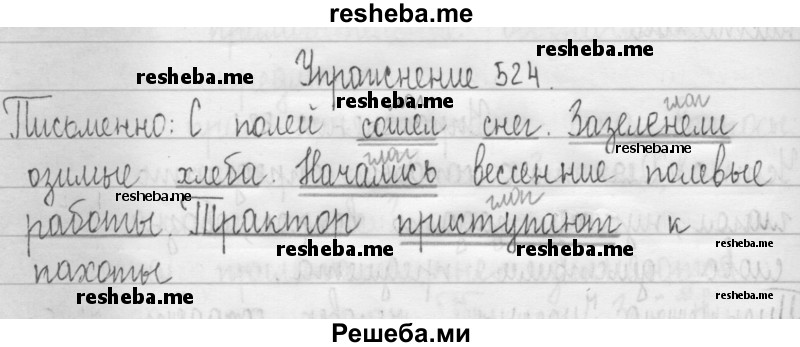 resheba.me
Упражнение 524.
resheba.me
resheba.me
resheba.me
глаг
Письменно: С полей сошел снег. Зазеленели
resheba.me
глаг
озимые хлеба. Начались вессенние полевые
resheba.me
глаг
работы. Трактор приступают к
resheba.me
resheba.me
resheba.me
пахоты
resheba.me
resheba.me
Решеба.ми